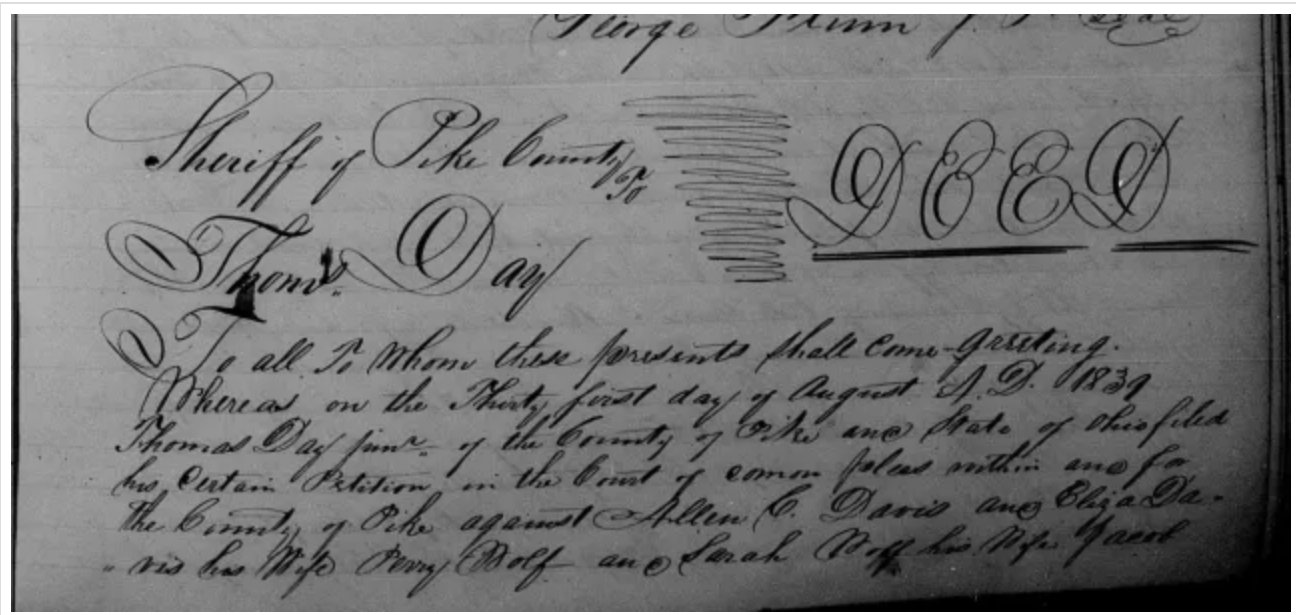 George
Sheriff of Pike County To DEED
Thoms. Day
To all To Whom these presents shall Come Greeting.
Whereas on the Thirty first day of August A.D. 1839
Thomas Day junr. of the County of Pike and State of Ohio filed
his Certain Petition in the Court of comon pleas within and for
the County of Pike against Allen C. Davis and Eliza Da-
"vis his Wife Perry Wolf and Sarah Wolf his Wife Jacob